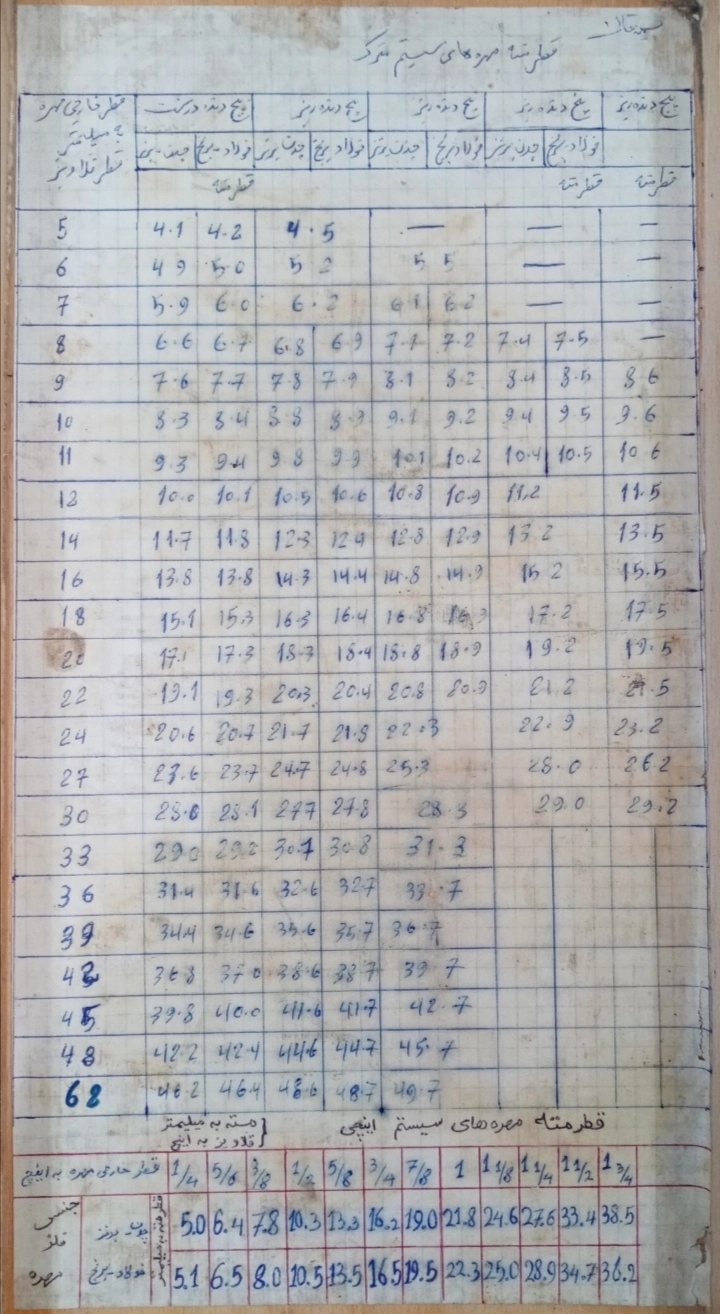 قطر مته مهره های سیستم متریک
قطر خارجی مهره به میلیمتر قطر قلاویز | پیچ دنده درشت | پیچ دنده ریز | پیچ دنده ریز | پیچ دنده ریز | پیچ دنده ریز
چدن-برنز | فولاد-برنج | چدن برنز | فولاد برنج | چدن برنز | فولاد برنج | چدن برنز | فولاد برنج
قطر مته قطر مته قطر مته
5 4.1 4.2 4.5 — — —
6 4.9 5.0 5.2 5.5 — —
7 5.9 6.0 6.2 6.1 6.2 — —
8 6.6 6.7 6.8 6.9 7.1 7.2 7.4 7.5 —
9 7.6 7.7 7.8 7.9 8.1 8.2 8.4 8.5 8.6
10 8.3 8.4 8.8 8.9 9.1 9.2 9.4 9.5 9.6
11 9.3 9.4 9.8 9.9 10.1 10.2 10.4 10.5 10.6
12 10.0 10.1 10.5 10.6 10.8 10.9 11.2 11.5
14 11.7 11.8 12.3 12.4 12.8 12.9 13.2 13.5
16 13.8 13.8 14.3 14.4 14.8 14.9 15.2 15.5
18 15.1 15.3 16.3 16.4 16.8 16.9 17.2 17.5
20 17.1 17.3 18.3 18.4 18.8 18.9 19.2 19.5
22 19.1 19.3 20.3 20.4 20.8 20.9 21.2 21.5
24 20.6 20.7 21.7 21.8 22.3 22.9 23.2
27 23.6 23.7 24.7 24.8 25.3 26.2
30 28.0 28.1 27.7 27.8 28.3 29.0 29.2
33 29.0 29.2 30.7 30.8 31.3
36 31.4 31.6 32.6 32.7 33.7
39 34.4 34.6 35.6 35.7 36.7
42 36.8 37.0 38.6 38.7 39.7
45 39.8 40.0 41.6 41.7 42.7
48 42.2 42.4 44.6 44.7 45.7
62 46.2 46.4 48.6 48.7 49.7
قطر مته مهره های سیستم اینچی { مته به میلیمتر
قلاویز به اینچ
قطر خارجی مهره به اینچ 1/4 5/6 3/8 1/2 5/8 3/4 7/8 1 1 1/8 1 1/4 1 1/2 1 3/4
جنس فلز مهره قطر مته به میلیمتر
چدن-برنز 5.0 6.4 7.8 10.3 13.3 16.2 19.0 21.8 24.6 27.6 33.4 38.5
فولاد-برنج 5.1 6.5 8.0 10.5 13.5 16.5 19.5 22.3 25.0 28.9 34.7 36.2